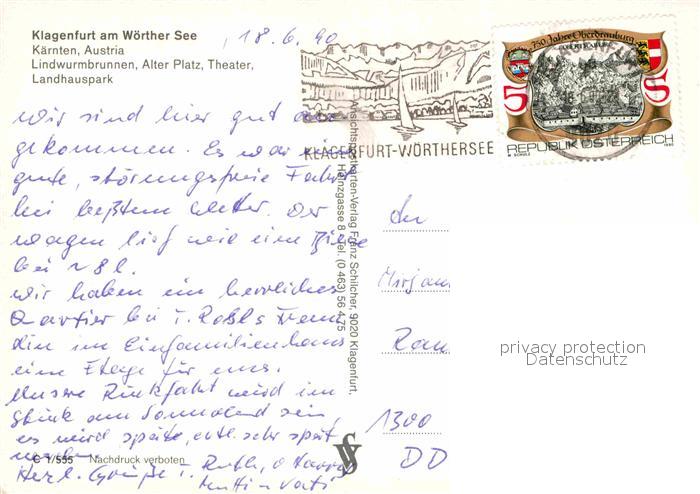 Klagenfurt am Wörther See
Kärnten, Austria
Lindwurmbrunnen, Alter Platz, Theater,
Landhauspark
18.6.90
KLAGENFURT-WÖRTHERSEE
750 Jahre Oberdrauburg
5 S
REPUBLIK ÖSTERREICH
wir sind hier gut an
gekommen. Es war eine
gute, störungsfreie Fahrt
bei bestem Wetter. Der
wagen lief wie eine Biene
bei ~ 8 l.
wir haben ein herrliches
Quartier bei
din im Einfamilienhaus
eine Etage für uns.
Unsere Rückfahrt wird im
Stück am Sonnabend sein,
es wird später, evtl. sehr spät
werden.
Herzl. Grüße v. Ruth,
Mutti u. Vati
C 1/555 Nachdruck verboten
Ansichtskarten-Verlag Franz Schilcher, 9020 Klagenfurt,
Hainzgasse 8 Tel. (0 463) 56 4 75
An
Mirjam
1300
DD
privacy protection
Datenschutz